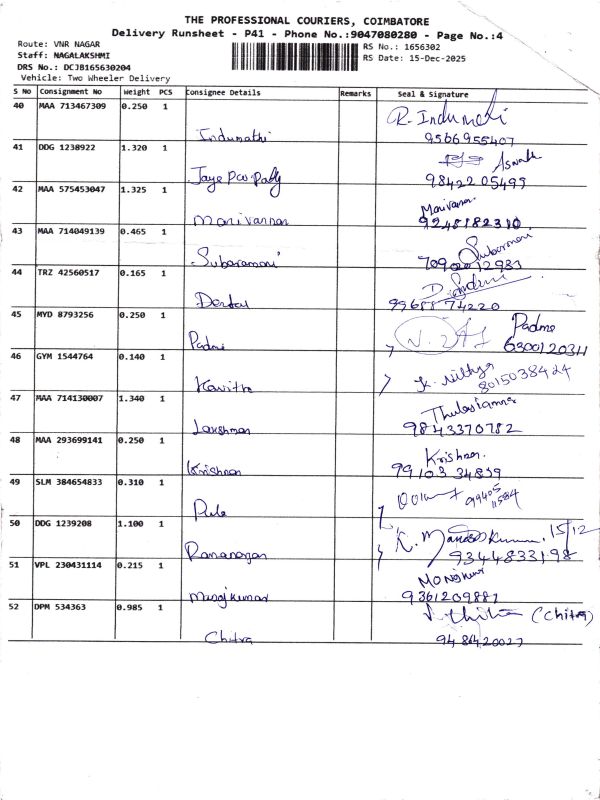 THE PROFESSIONAL COURIERS, COIMBATORE
Delivery Runsheet - P41 - Phone No.:9047080280 - Page No.:4
Route: VNR NAGAR
RS No.: 1656302
Staff: NAGALAKSHMI
RS Date: 15-Dec-2025
DRS No.: DCJB165630204
Vehicle: Two Wheeler Delivery
S No Consignment No Weight PCS Consignee Details Remarks Seal & Signature
40 MAA 713467309 0.250 1
Indumathi R. Indumathi
9566955407
41 DDG 1238922 1.320 1
Aswath
9842205495
42 MAA 575453047 1.325 1
Marivannan Marivannan
9248182310
43 MAA 714049139 0.465 1
Subaramani Subaramani
44 TRZ 42560517 0.165 1
9968874220
45 MYD 8793256 0.250 1
Padmi Padma
6300120311
46 GYM 1544764 0.140 1
Kavitha K. Nithya
8015038424
47 MAA 714130007 1.340 1
Lakshman
9843370782
48 MAA 293699141 0.250 1
Krishnan Krishnan.
99103 34859
49 SLM 384654833 0.310 1
50 DDG 1239208 1.100 1
15/12
9344833198
51 VPL 230431114 0.215 1
Manojkumar
9361209881
52 DPM 534363 0.985 1
Chitra (Chitra)
9486420027